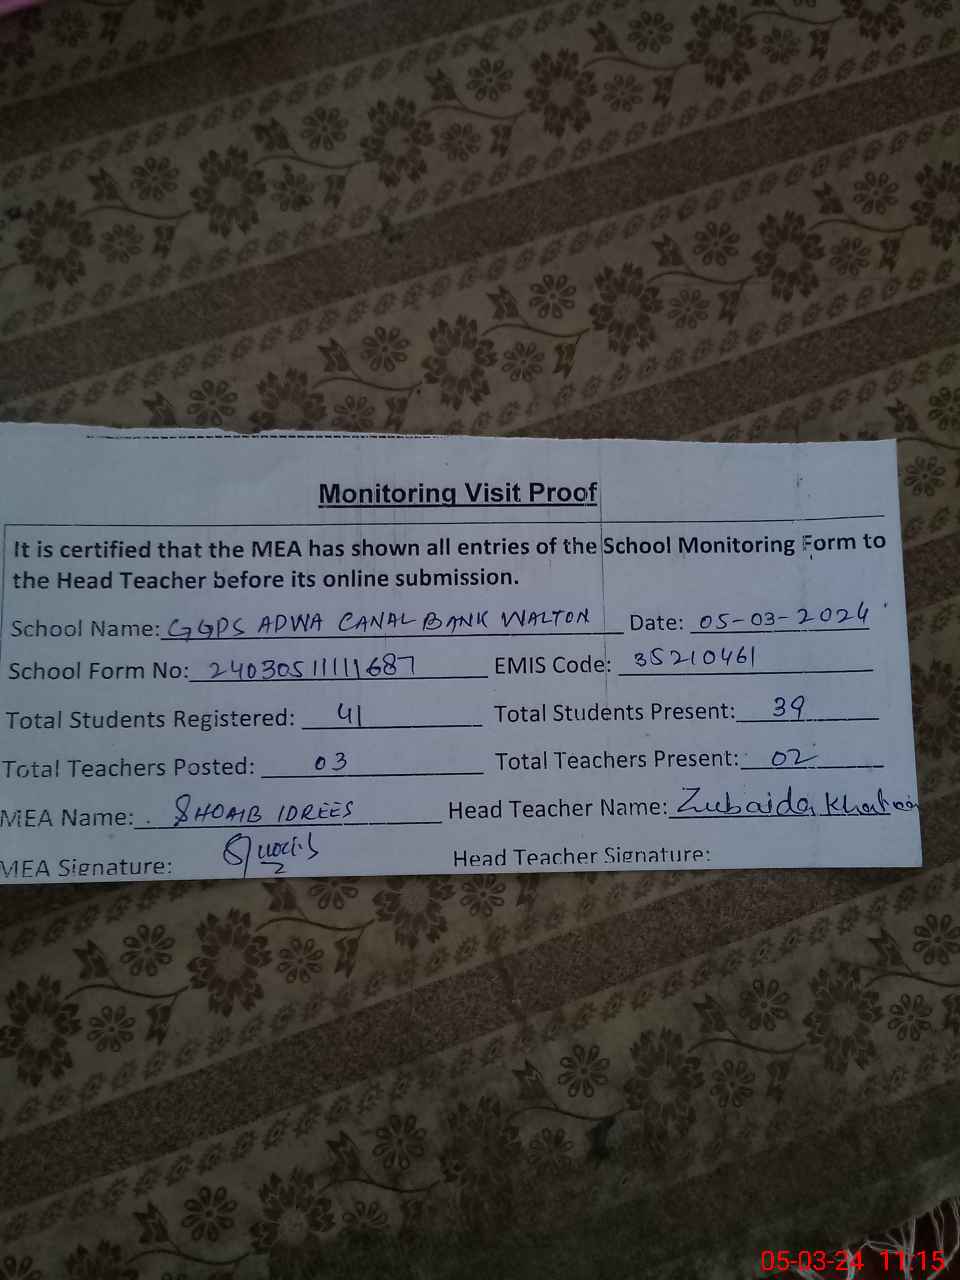 Monitoring Visit Proof
It is certified that the MEA has shown all entries of the School Monitoring Form to
the Head Teacher before its online submission.
School Name: GGPS ADWA CANAL BANK WALTON Date: 05-03-2024
School Form No: 24030511111687 EMIS Code: 35210461
Total Students Registered: 41 Total Students Present: 39
Total Teachers Posted: 03 Total Teachers Present: 02
MEA Name: SHOAIB IDREES Head Teacher Name: Zubaida
MEA Signature: Head Teacher Signature:
05-03-24 11:15